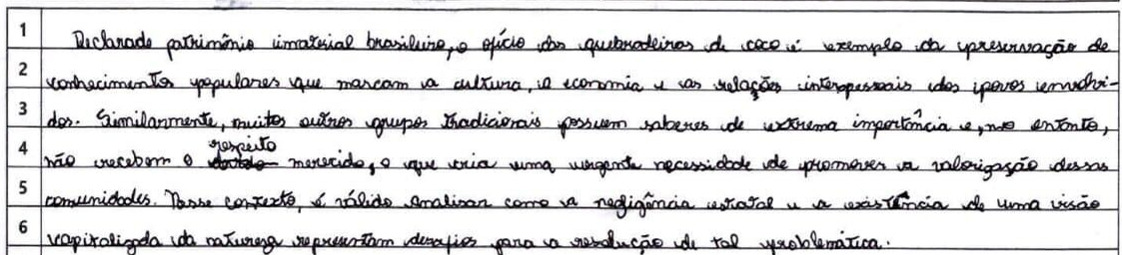 1 Declarado patrimônio imaterial brasileiro, o ofício das quebradeiras de coco é exemplo da preservação de
2 conhecimentos populares que marcam a cultura, a economia e as relações interpessoais dos povos envolvi-
3 dos. Similarmente, muitos outros grupos tradicionais possuem saberes de extrema importância e, no entanto,
4 não recebem o respeito merecido, o que cria uma urgente necessidade de promover a valorização dessas
5 comunidades. Nesse contexto, é válido analisar como a negligência estatal e a existência de uma visão
6 capitalizada da natureza representam desafios para a resolução de tal problemática.